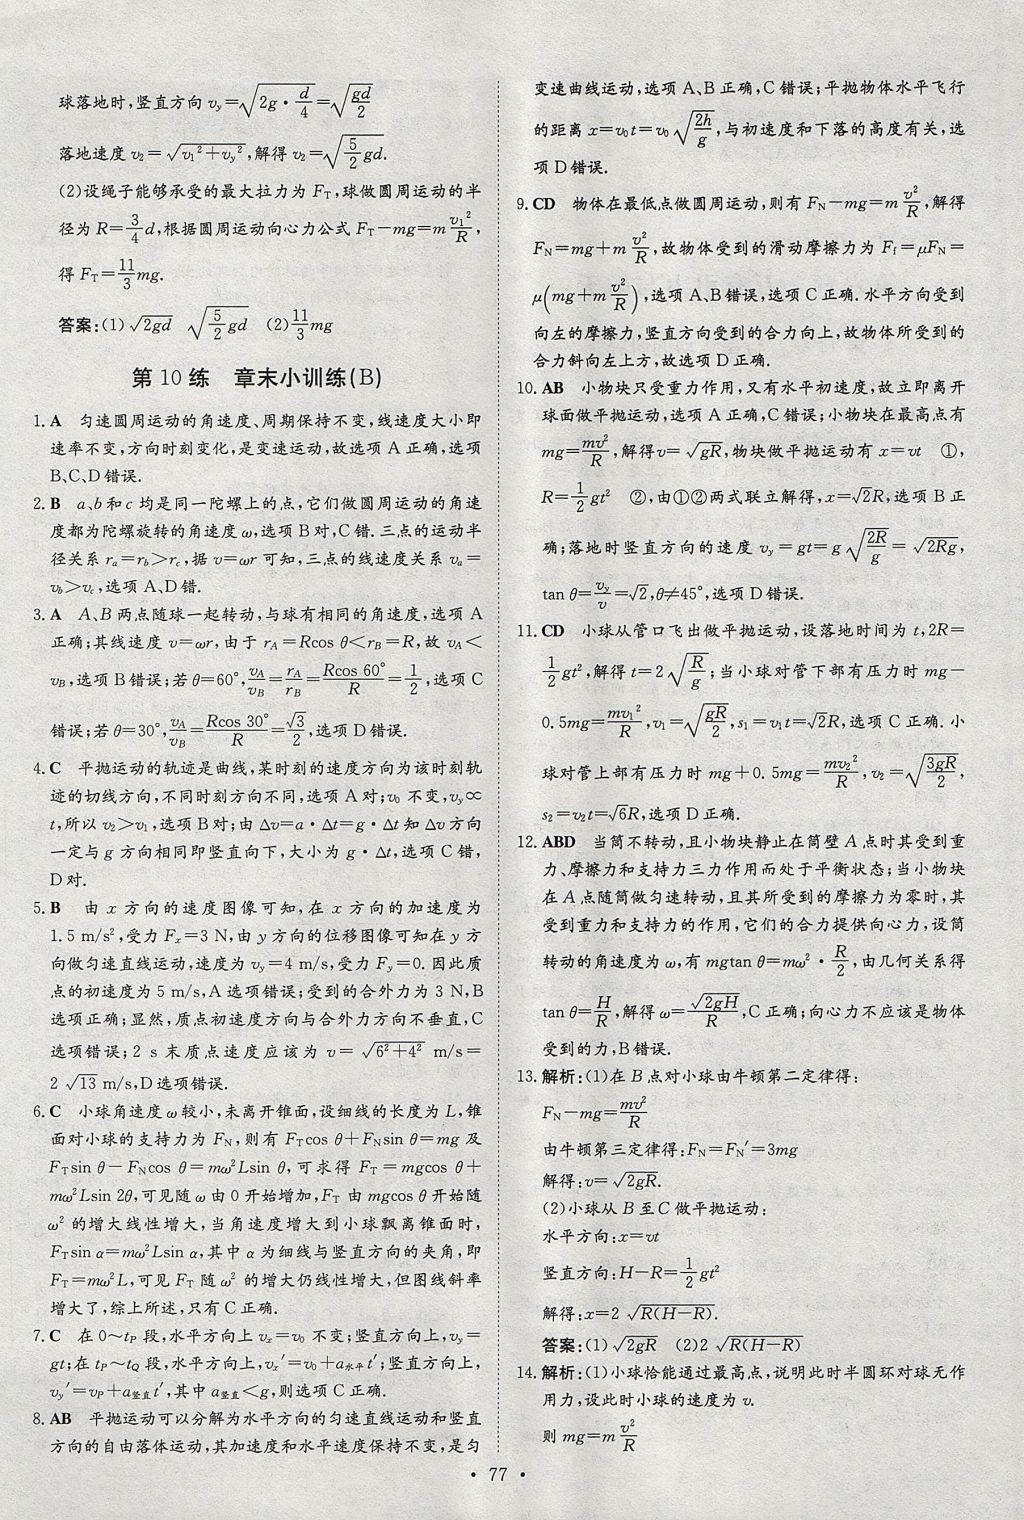 球落地时,竖直方向 v_y=√(2g·d/4)=√(gd/2)
落地速度 v₂=√(v₁²+v_y²),解得 v₂=√(5/2 gd).
(2)设绳子能够承受的最大拉力为 F_T,球做圆周运动的半
径为 R=3/4 d,根据圆周运动向心力公式 F_T-mg=m v₁²/R,
得 F_T=11/3 mg.
答案:(1)√(2gd) √(5/2 gd) (2)11/3 mg
第 10 练 章末小训练(B)
1. A 匀速圆周运动的角速度、周期保持不变,线速度大小即
速率不变,方向时刻变化,是变速运动,故选项 A 正确,选项
B、C、D 错误.
2. B a、b 和 c 均是同一陀螺上的点,它们做圆周运动的角速
度都为陀螺旋转的角速度 ω,选项 B 对,C 错. 三点的运动半
径关系 r_a=r_b>r_c,据 v=ωr 可知,三点的线速度关系 v_a=
v_b>v_c,选项 A、D 错.
3. A A、B 两点随球一起转动,与球有相同的角速度,选项 A
正确;其线速度 v=ωr,由于 r_A=Rcos θ<r_B=R,故 v_A<
v_B,选项 B 错误;若 θ=60°,v_A/v_B=r_A/r_B=Rcos 60°/R=1/2,选项 C
错误;若 θ=30°,v_A/v_B=Rcos 30°/R=√3/2,选项 D 错误.
4. C 平抛运动的轨迹是曲线,某时刻的速度方向为该时刻轨
迹的切线方向,不同时刻方向不同,选项 A 对;v₀ 不变,v_y∝
t,所以 v₂>v₁,选项 B 对;由 Δv=a·Δt=g·Δt 知 Δv 方向
一定与 g 方向相同即竖直向下,大小为 g·Δt,选项 C 错,
D 对.
5. B 由 x 方向的速度图像可知,在 x 方向的加速度为
1.5 m/s²,受力 F_x=3 N,由 y 方向的位移图像可知在 y 方
向做匀速直线运动,速度为 v_y=4 m/s,受力 F_y=0. 因此质
点的初速度为 5 m/s,A 选项错误;受到的合外力为 3 N,B
选项正确;显然,质点初速度方向与合外力方向不垂直,C
选项错误;2 s 末质点速度应该为 v=√(6²+4²) m/s=
2√13 m/s,D 选项错误.
6. C 小球角速度 ω 较小,未离开锥面,设细线的长度为 L,锥
面对小球的支持力为 F_N,则有 F_Tcos θ+F_Nsin θ=mg 及
F_Tsin θ-F_Ncos θ=mω²Lsin θ,可求得 F_T=mgcos θ+
mω²Lsin 2θ,可见随 ω 由 0 开始增加,F_T 由 mgcos θ 开始随
ω² 的增大线性增大,当角速度增大到小球飘离锥面时,
F_Tsin α=mω²Lsin α,其中 α 为细线与竖直方向的夹角,即
F_T=mω²L,可见 F_T 随 ω² 的增大仍线性增大,但图线斜率
增大了,综上所述,只有 C 正确.
7. C 在 0～t_P 段,水平方向上 v_x=v₀ 不变;竖直方向上,v_y=
gt;在 t_P～t_Q 段,水平方向上,v_x′=v₀+a水平t′;竖直方向上,
v_y′=v_P+a竖直t′,其中 a竖直<g,则选项 C 正确.
8. AB 平抛运动可以分解为水平方向的匀速直线运动和竖直
方向的自由落体运动,其加速度和水平速度保持不变,是匀
变速曲线运动,选项 A、B 正确,C 错误;平抛物体水平飞行
的距离 x=v₀t=v₀√(2h/g),与初速度和下落的高度有关,选
项 D 错误.
9. CD 物体在最低点做圆周运动,则有 F_N-mg=m v²/R,解得
F_N=mg+m v²/R,故物体受到的滑动摩擦力为 F_f=μF_N=
μ(mg+m v²/R),选项 A、B 错误,选项 C 正确. 水平方向受到
向左的摩擦力,竖直方向受到的合力向上,故物体所受到的
合力斜向左上方,故选项 D 正确.
10. AB 小物块只受重力作用,又有水平初速度,故立即离开
球面做平抛运动,选项 A 正确,C 错误;小物块在最高点有
mg=mv²/R,解得 v=√(gR),物块做平抛运动有 x=vt ①,
R=1/2 gt² ②,由①②两式联立解得,x=√2R,选项 B 正
确;落地时竖直方向的速度 v_y=gt=g√(2R/g)=√(2Rg),
tan θ=v_y/v=√2,θ≠45°,选项 D 错误.
11. CD 小球从管口飞出做平抛运动,设落地时间为 t,2R=
1/2 gt²,解得 t=2√(R/g);当小球对管下部有压力时 mg-
0.5mg=mv₁²/R,v₁=√(gR/2),s₁=v₁t=√2R,选项 C 正确. 小
球对管上部有压力时 mg+0.5mg=mv₂²/R,v₂=√(3gR/2),
s₂=v₂t=√6R,选项 D 正确.
12. ABD 当筒不转动,且小物块静止在筒壁 A 点时其受到重
力、摩擦力和支持力三力作用而处于平衡状态;当小物块
在 A 点随筒做匀速转动,且其所受到的摩擦力为零时,其
受到重力和支持力的作用,它们的合力提供向心力,设筒
转动的角速度为 ω,有 mgtan θ=mω²·R/2,由几何关系得
tan θ=H/R,解得 ω=√(2gH)/R,C 正确;向心力不应该是物体
受到的力,B 错误.
13. 解析:(1)在 B 点对小球由牛顿第二定律得:
F_N-mg=mv²/R
由牛顿第三定律得:F_N=F_N′=3mg
解得:v=√(2gR).
(2)小球从 B 至 C 做平抛运动:
水平方向:x=vt
竖直方向:H-R=1/2 gt²
解得:x=2√(R(H-R)).
答案:(1)√(2gR) (2)2√(R(H-R))
14. 解析:(1)小球恰能通过最高点,说明此时半圆环对球无作
用力,设此时小球的速度为 v.
则 mg=m v²/R
• 77 •